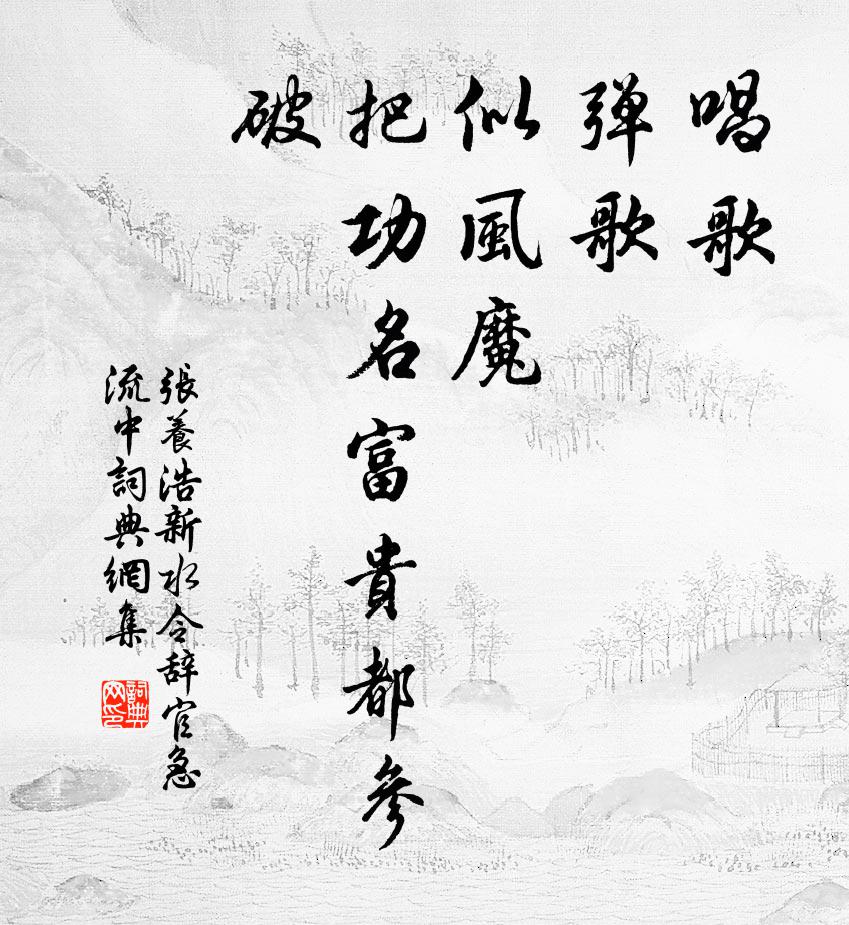 唱歌
弹歌
似風魔
把功名富貴都參
破
張養浩新水令辞官急
流中詞典網集
詞典网印